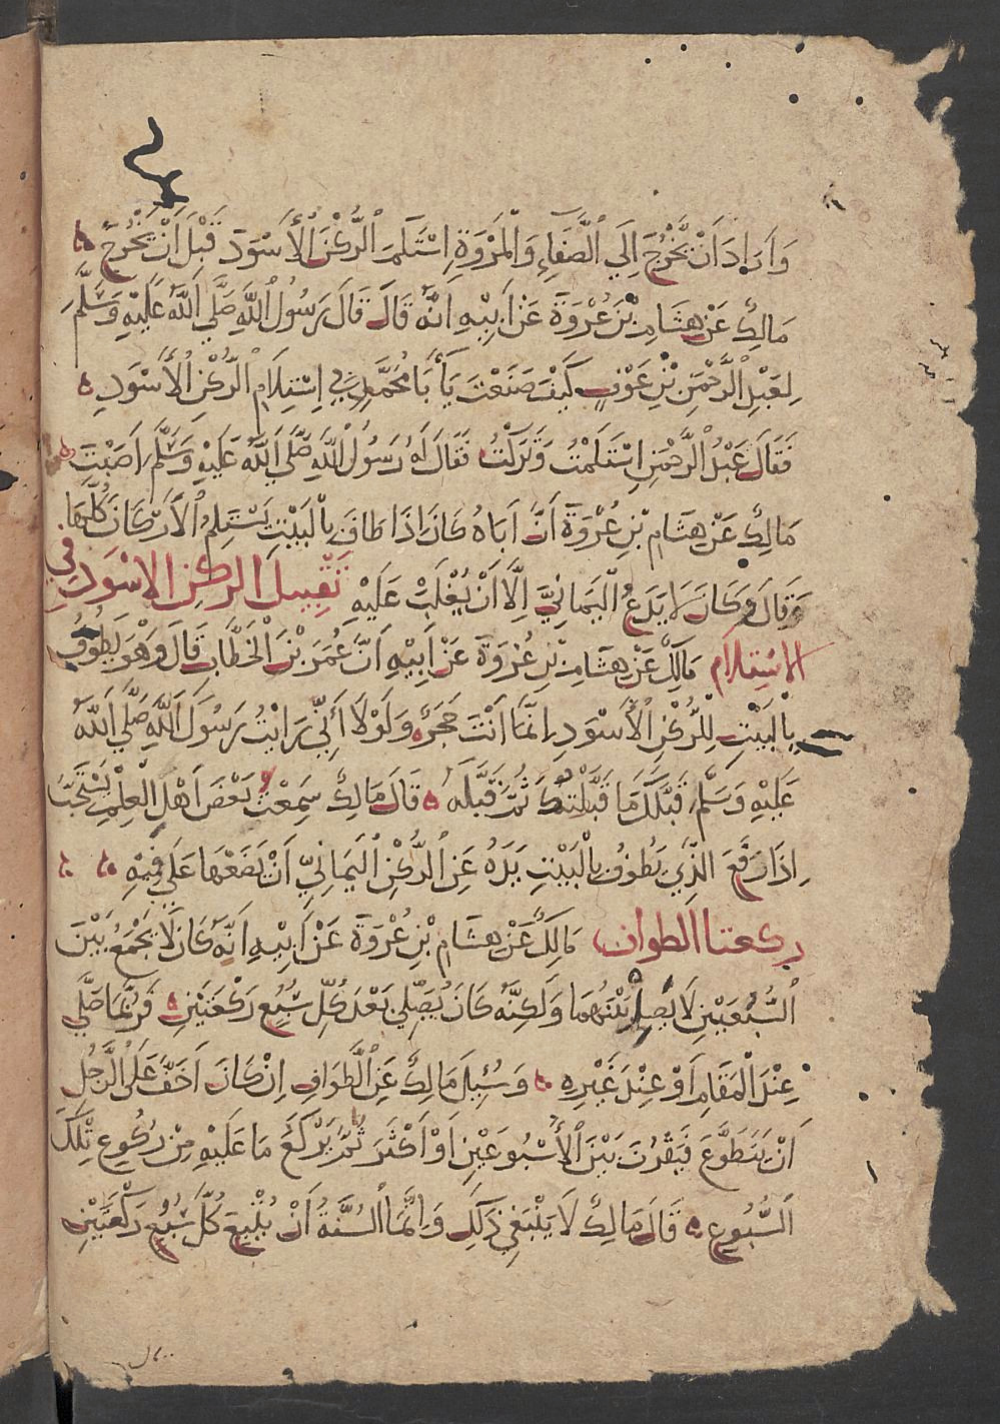 وَاَرَادَ اَنْ يَّخْرُجَ اِلَي الصَّفَاءِ وَالْمَرْوَةِ اِسْتَلَمَ الرُّكْنَ الْأَسْوَدَ قَبْلَ اَنْ يَخْرُجَ
مَالِكٌ عَنْ هِشَامِ بْنِ عُرْوَةَ عَنْ اَبِيْهِ اَنَّهُ قَالَ قَالَ رَسُوْلُ اللهِ صَلَّي اللهُ عَلَيْهِ وَسَلَّمَ
لِعَبْدِ الرَّحْمٰنِ بْنِ عَوْفٍ كَيْفَ صَنَعْتَ يَأَبَا مُحَمَّدٍ فِي اِسْتِلَامِ الرُّكْنِ الْأَسْوَدِ
فَقَالَ عَبْدُ الرَّحْمٰنِ اِسْتَلَمْتُ وَتَرَكْتُ فَقَالَ لَهُ رَسُوْلُ اللهِ صَلَّي اللهُ عَلَيْهِ وَسَلَّمَ اَصَبْتَ
مَالِكٌ عَنْ هِشَامِ بْنِ عُرْوَةَ اَنَّ اَبَاهُ كَانَ اِذَا طَافَ بِالْبَيْتِ يَسْتَلِمُ الْاَرْكَانَ كُلَّهَا
وَقَالَ وَكَانَ لَا يَدَعُ الْيَمَانِيَّ اِلَّا اَنْ يُغْلَبَ عَلَيْهِ تَقْبِيلُ الركن الاسْوَدِ في
الاسْتِلام مَالِكٌ عَنْ هِشَامِ بْنِ عُرْوَةَ عَنْ اَبِيْهِ اَنَّ عُمَرَ بْنَ الْخَطَّابِ قَالَ وَهُوَ يَطُوْفُ
بِالْبَيْتِ لِلرُّكْنِ الْأَسْوَدِ اِنَّمَا اَنْتَ حَجَرٌ وَلَوْلَا أَنِّي رَايْتُ رَسُوْلَ اللهِ صَلَّي اللهُ
عَلَيْهِ وَسَلَّمَ قَبَّلَكَ مَا قَبَّلْتُكَ ثُمَّ قَبَّلَهُ قَالَ مَالِكٌ سَمِعْتُ بَعْضَ اَهْلِ الْعِلْمِ يَسْتَحِبُّ
اِذَا رَفَعَ الَّذِي يَطُوْفُ بِالْبَيْتِ يَدَهُ عَنِ الرُّكْنِ الْيَمَانِيِّ اَنْ يَضَعَهَا عَلَي فِيْهِ
ركعتا الطواف مَالِكٌ عَنْ هِشَامِ بْنِ عُرْوَةَ عَنْ اَبِيْهِ اَنَّهُ كَانَ لَا يَجْمَعُ بَيْنَ
السُّبُعَيْنِ لَا يُصَلِّي بَيْنَهُمَا وَلَكِنَّهُ كَانَ يُصَلِّي بَعْدَ كُلِّ سُبُعٍ رَكْعَتَيْنِ فَرُبَّمَا صَلَّي
عِنْدَ الْمَقَامِ اَوْ عِنْدَ غَيْرِهِ وَسُئِلَ مَالِكٌ عَنِ الطَّوَافِ اِنْ كَانَ اَخَفَّ عَلَي الرَّجُلِ
اَنْ يَتَطَوَّعَ فَيَقْرُنَ بَيْنَ الْأُسْبُوعَيْنِ اَوْ اَكْثَرَ ثُمَّ يَرْكَعَ مَا عَلَيْهِ مِنْ رُكُوعِ تِلْكَ
السُّبُوعِ قَالَ مَالِكٌ لَا يَنْبَغِي ذَلِكَ وَاِنَّمَا السُّنَّةُ اَنْ يُتْبِعَ كُلَّ سُبُعٍ رَكْعَتَيْنِ